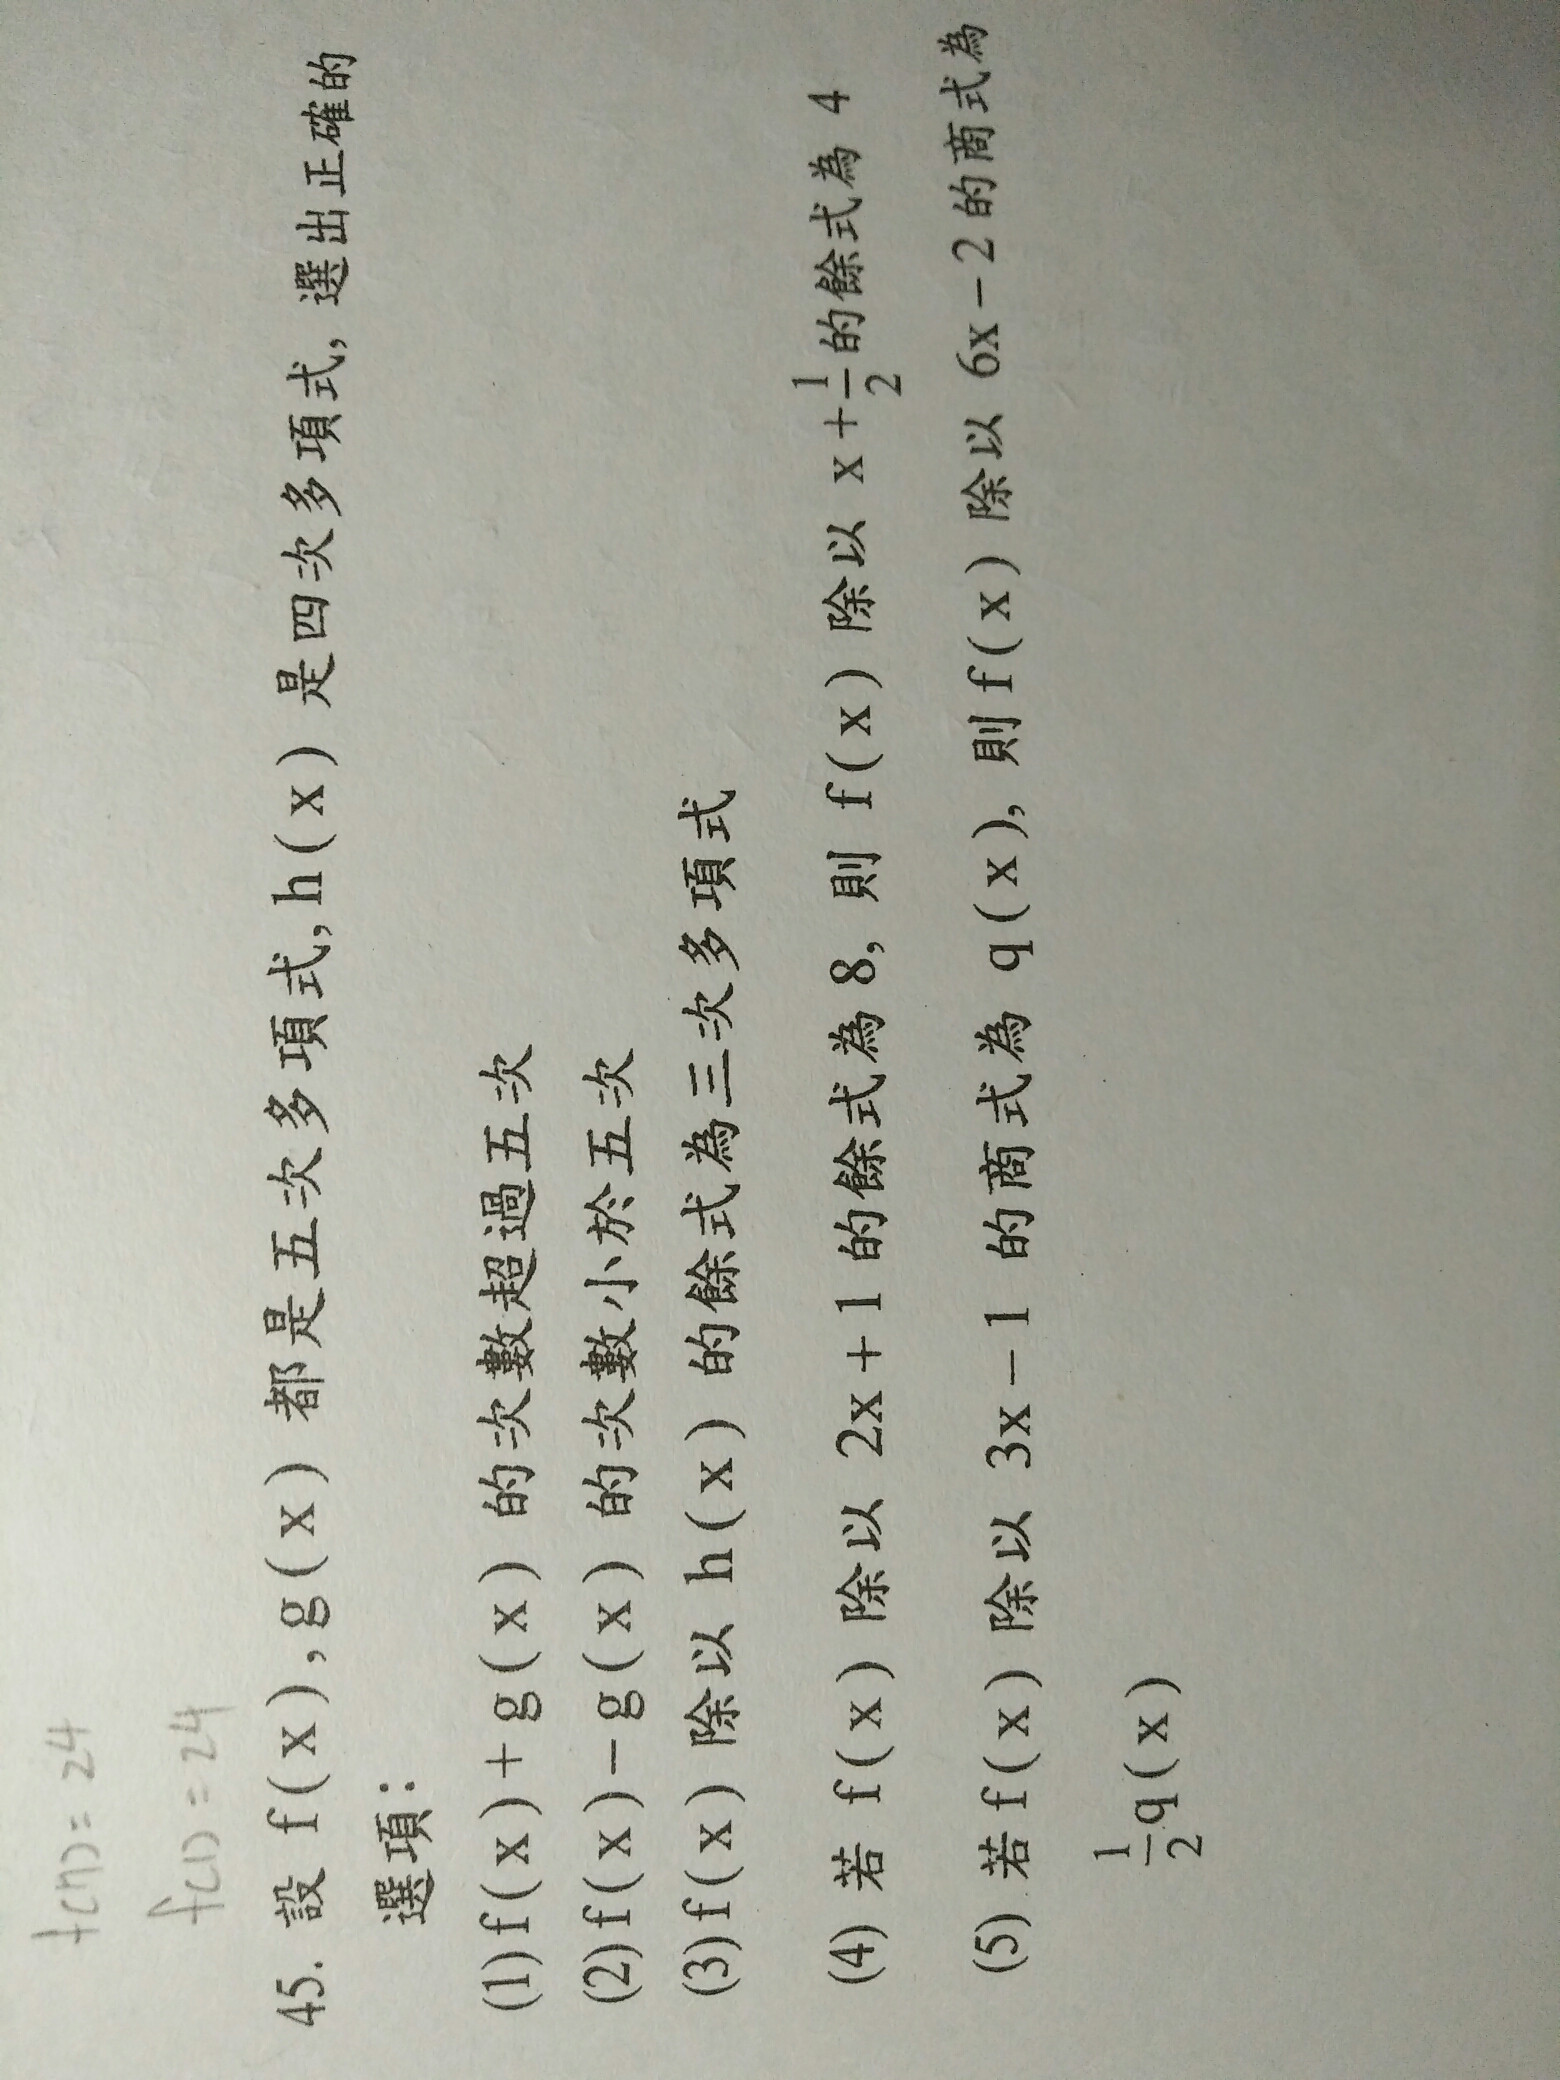 f(7)=24
f(1)=24
45. 設 f(x),g(x) 都是五次多項式,h(x) 是四次多項式, 選出正確的
選項:
(1)f(x)+g(x) 的次數超過五次
(2)f(x)-g(x) 的次數小於五次
(3)f(x) 除以 h(x) 的餘式為三次多項式
(4) 若 f(x) 除以 2x+1 的餘式為 8, 則 f(x) 除以 x+1/2 的餘式為 4
(5) 若 f(x) 除以 3x-1 的商式為 q(x), 則 f(x) 除以 6x-2 的商式為
1/2 q(x)